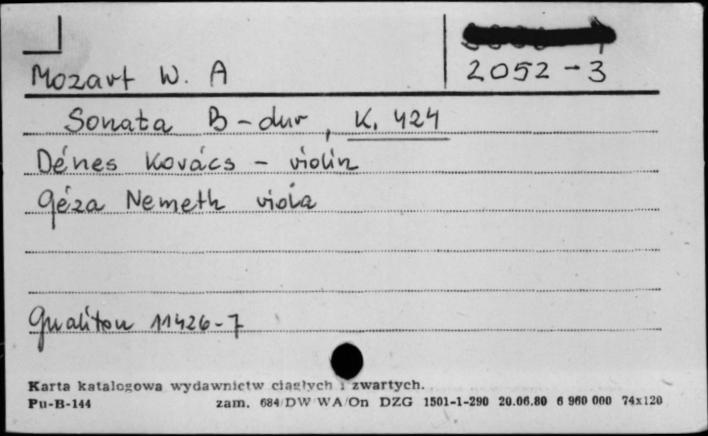 Mozart W. A
2052-3
Sonata B-dur, K. 424
Dénes Kovács - violin
Géza Nemeth viola
Qualiton 11426-7
Karta katalogowa wydawnictw ciągłych i zwartych.
Pu-B-144 zam. 684/DW WA/On DZG 1501-1-290 20.06.80 6 960 000 74x120